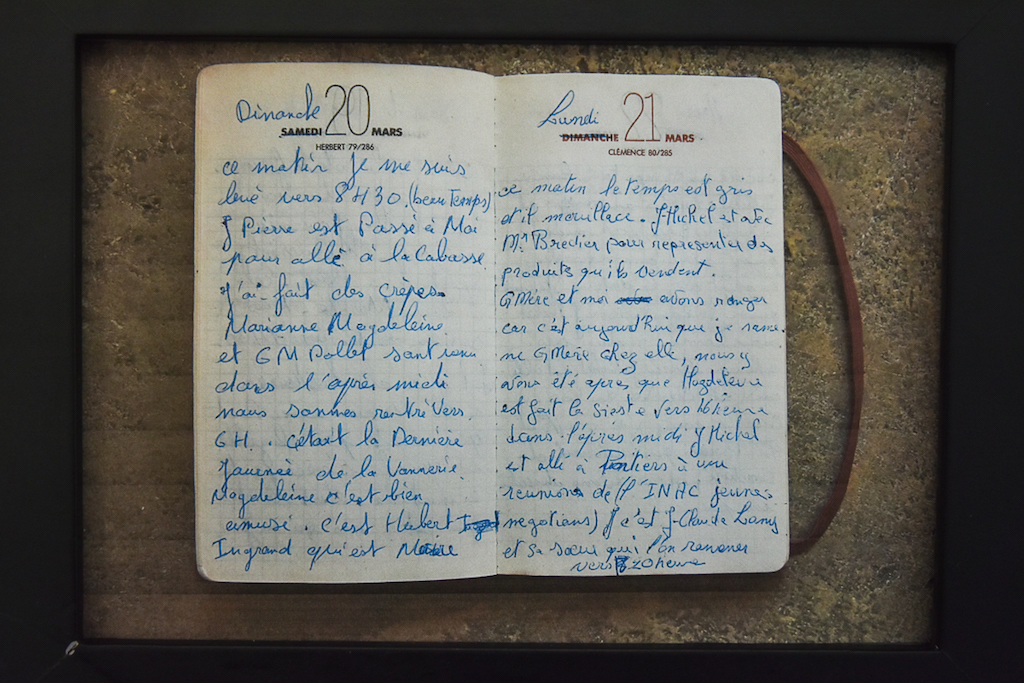 Dimanche
20
SAMEDI MARS
HERBERT 79/286
ce matin je me suis
levé vers 8H30. (beau Temps)
J Pierre est Passé à Moi
pour allé à la Cabasse
J'ai fait des crèpes
Marianne Magdeleine
et GM Pollet sont venu
dans l'après midi
nous sommes rentré vers
6H. C'était la Dernière
Journée de la Vannerie
Magdeleine c'est bien
amusé. c'est Hubert
Ingrand qui est Maire
Lundi
21
DIMANCHE MARS
CLÉMENCE 80/285
ce matin le temps est gris
et il mouillace. J Michel est avec
Mr Bredier pour representer des
produits qu'ils vendent.
GMère et moi avons ranger
car c'ét aujourd'hui que je rame
ne GMère chez elle, nous y
avons été apres que Magdeleine
est fait la Sieste vers 16 heure
dans l'après midi J Michel
et allé à Poitiers à une
reunion de (l'INAC jeunes
negotians) J c'est J-Claude Lamy
et sa sœur qui l'on ramener
vers 20 heure